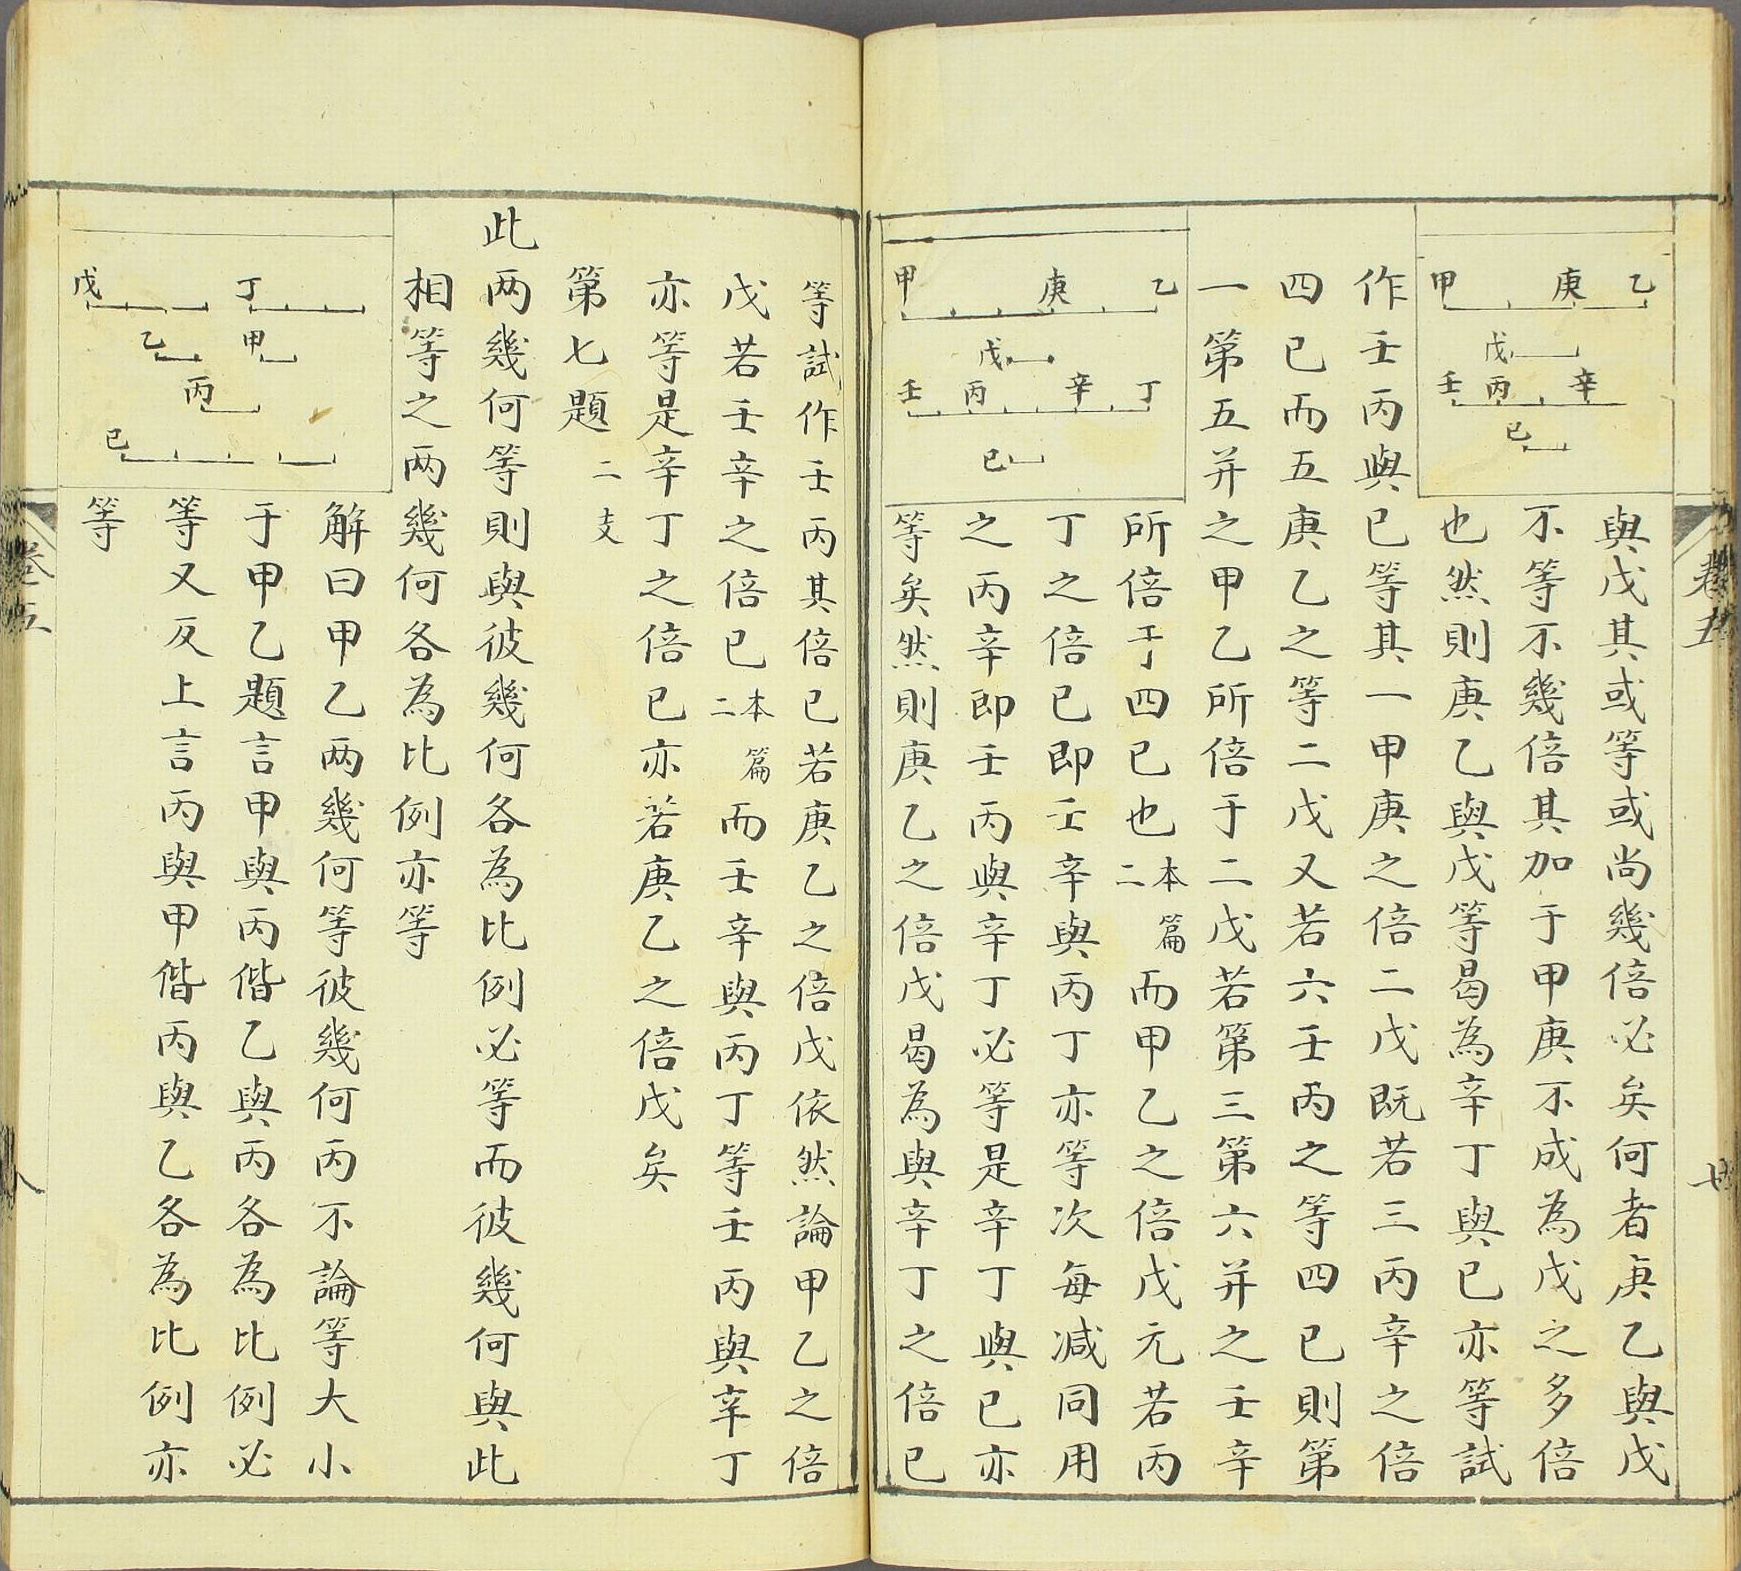 卷五
廿
甲 庚 乙
戊
壬 丙 辛
已
與戊其或等或尚幾倍必矣何者庚乙與戊
不等不幾倍其加于甲庚不成為戊之多倍
也然則庚乙與戊等曷為辛丁與已亦等試
作壬丙與已等其一甲庚之倍二戊既若三丙辛之倍
四已而五庚乙之等二戊又若六壬丙之等四已則第
一第五并之甲乙所倍于二戊若第三第六并之壬辛
甲 庚 乙
戊
壬 丙 辛 丁
已
所倍于四已也本篇二而甲乙之倍戊元若丙
丁之倍已即壬辛與丙丁亦等次每減同用
之丙辛即壬丙與辛丁必等是辛丁與已亦
等矣然則庚乙之倍戊曷為與辛丁之倍已
等試作壬丙其倍已若庚乙之倍戊依然論甲乙之倍
戊若壬辛之倍已本篇二而壬辛與丙丁等壬丙與辛丁
亦等是辛丁之倍已亦若庚乙之倍戊矣
第七題二支
此兩幾何等則與彼幾何各為比例必等而彼幾何與此
相等之兩幾何各為比例亦等
戊 丁
乙 甲
丙
已
解曰甲乙兩幾何等彼幾何丙不論等大小
于甲乙題言甲與丙偕乙與丙各為比例必
等又反上言丙與甲偕丙與乙各為比例亦
等
卷五